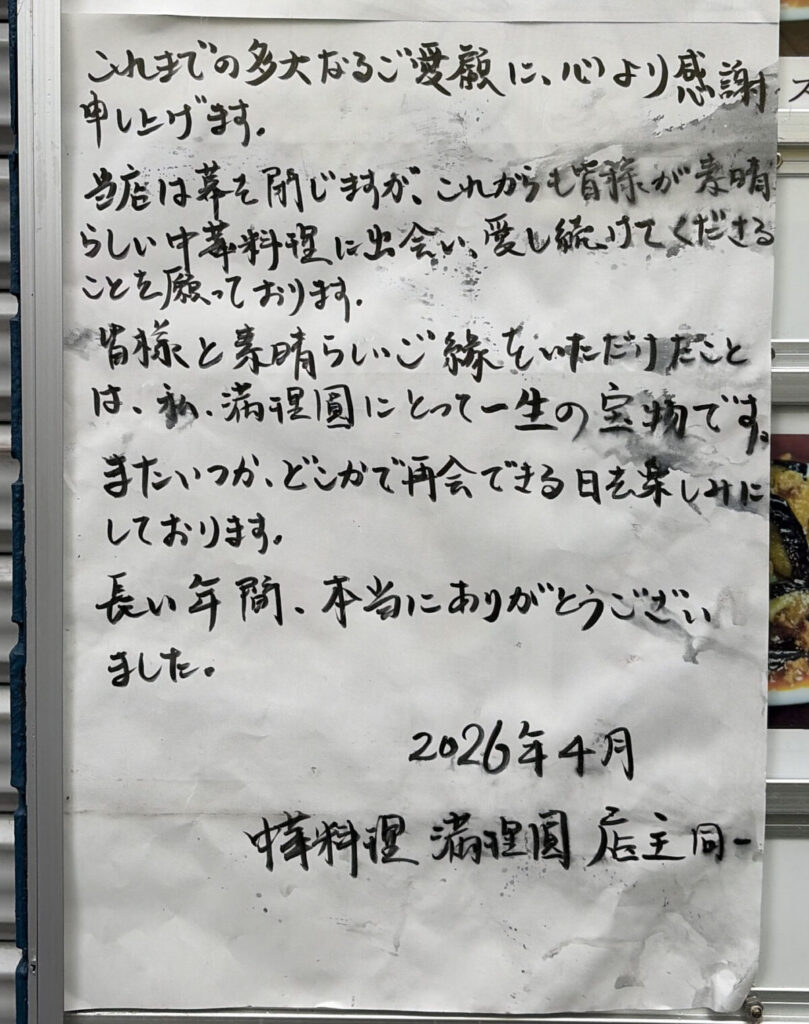 これまでの多大なるご愛顧に、心より感謝
申し上げます。
当店は幕を閉じますが、これからも皆様が素晴
らしい中華料理に出会い、愛し続けてくださる
ことを願っております。
皆様と素晴らしいご縁をいただけたこと
は、私、満理圓にとって一生の宝物です。
またいつか、どこかで再会できる日を楽しみに
しております。
長い年間、本当にありがとうござい
ました。
2026年4月
中華料理 満理圓 店主同一